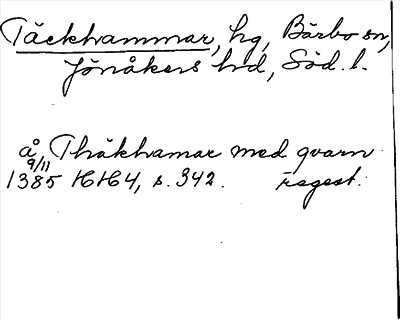 Täckhammar, hg, Bärbo sn,
Jönåkers hd, Söd. l.
å Thäkhamar med qvarn
9/11
1385 HH4, s. 342. regest.